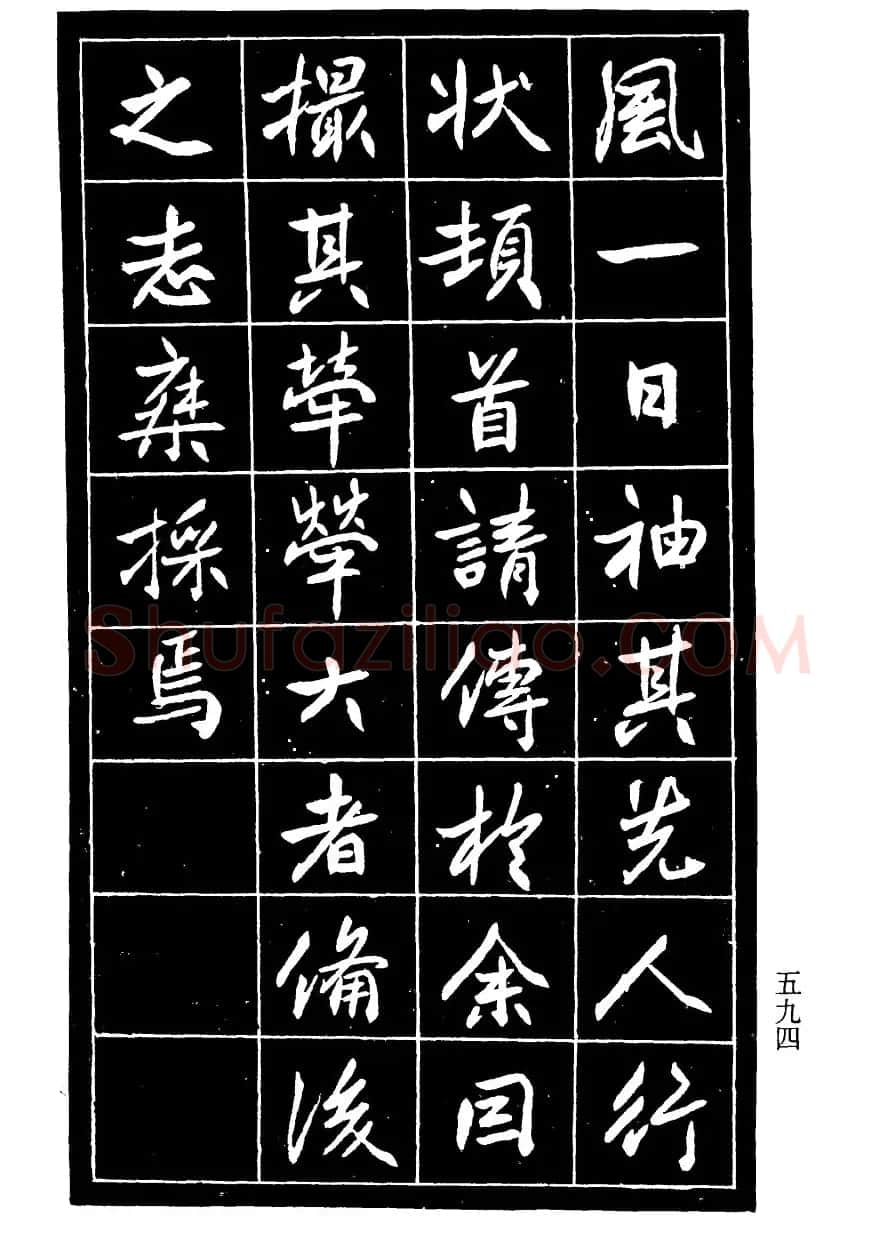 風一日袖其先人行
狀頓首請傳於余因
撮其犖犖大者備後
之志乘採焉
五九四
Shufaziliao.COM